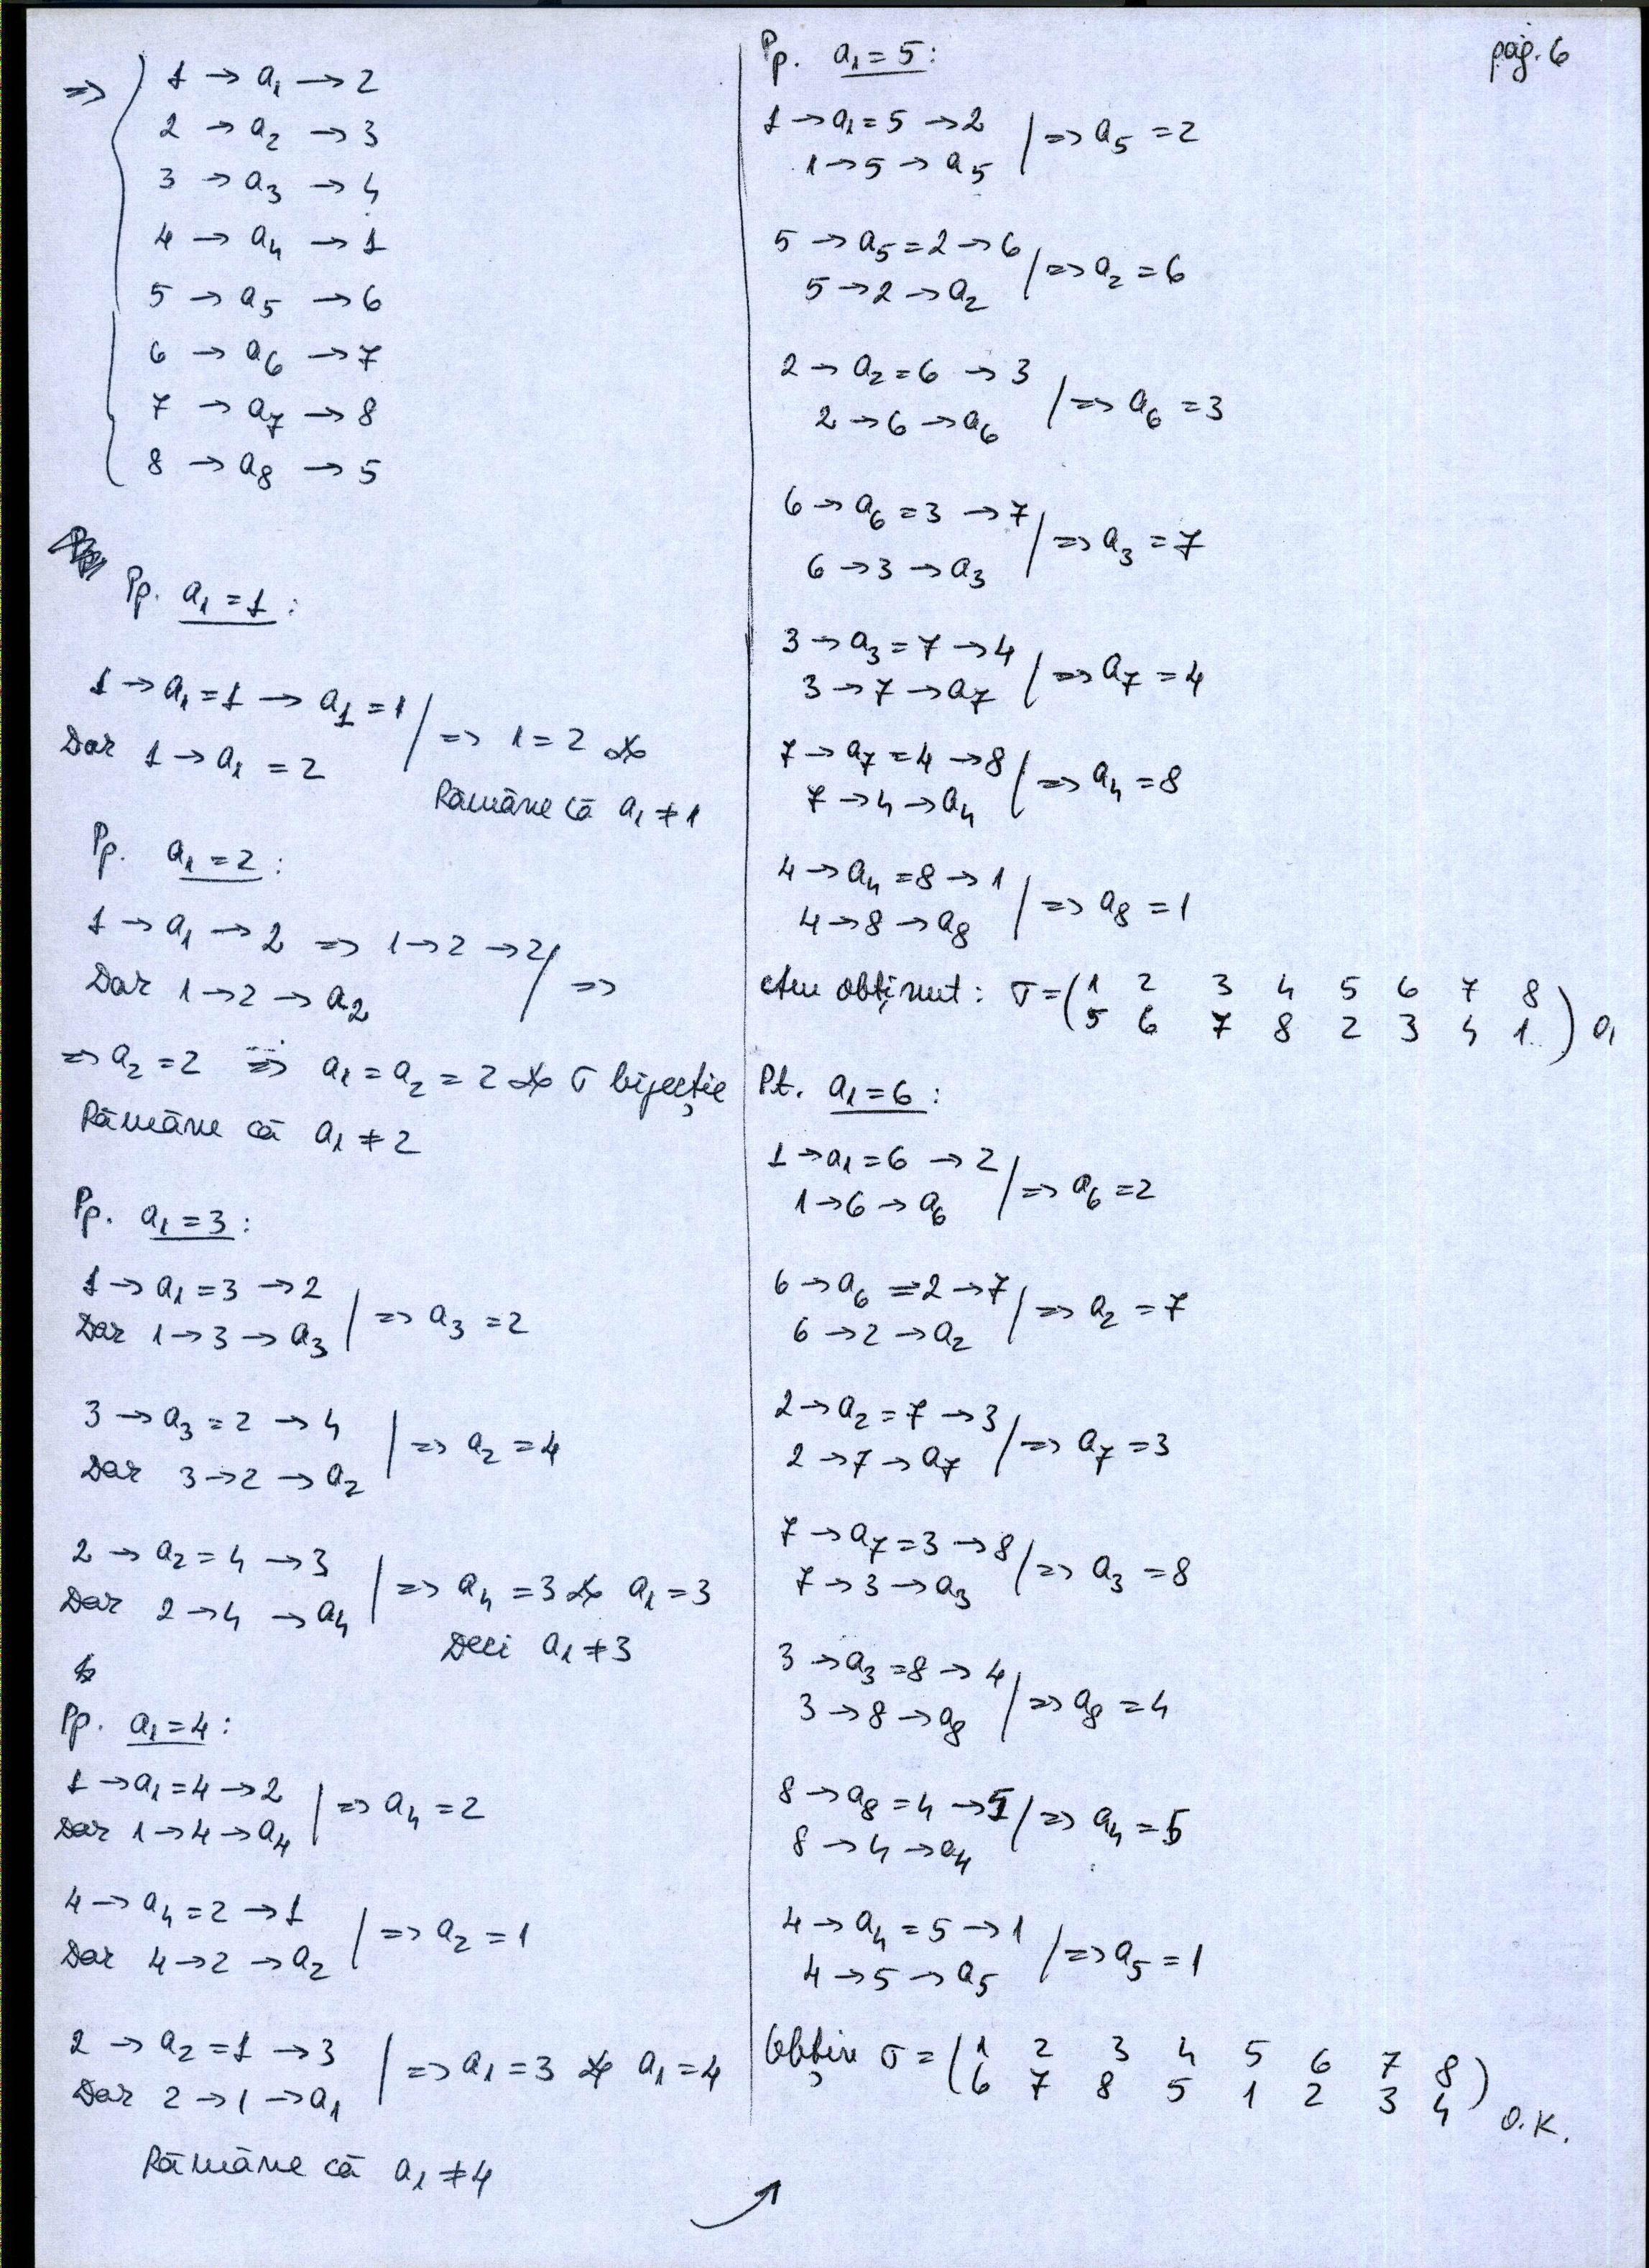 pag. 6
=> 1 → a₁ → 2
2 → a₂ → 3
3 → a₃ → 4
4 → a₄ → 1
5 → a₅ → 6
6 → a₆ → 7
7 → a₇ → 8
8 → a₈ → 5
Pp. a₁ = 1 :
1 → a₁ = 1 → a₁ = 1
Dar 1 → a₁ = 2
=> 1 = 2
Rămâne că a₁ ≠ 1
Pp. a₁ = 2 :
1 → a₁ → 2 => 1 → 2 → 2
Dar 1 → 2 → a₂ | =>
=> a₂ = 2 => a₁ = a₂ = 2 σ bijecție
Rămâne că a₁ ≠ 2
Pp. a₁ = 3 :
1 → a₁ = 3 → 2
Dar 1 → 3 → a₃ | => a₃ = 2
3 → a₃ = 2 → 4
Dar 3 → 2 → a₂ | => a₂ = 4
2 → a₂ = 4 → 3
Dar 2 → 4 → a₄ | => a₄ = 3 a₁ = 3
Deci a₁ ≠ 3
Pp. a₁ = 4 :
1 → a₁ = 4 → 2
Dar 1 → 4 → a₄ | => a₄ = 2
4 → a₄ = 2 → 1
Dar 4 → 2 → a₂ | => a₂ = 1
2 → a₂ = 1 → 3
Dar 2 → 1 → a₁ | => a₁ = 3 a₁ = 4
Rămâne că a₁ ≠ 4
Pp. a₁ = 5 :
1 → a₁ = 5 → 2
1 → 5 → a₅ | => a₅ = 2
5 → a₅ = 2 → 6
5 → 2 → a₂ | => a₂ = 6
2 → a₂ = 6 → 3
2 → 6 → a₆ | => a₆ = 3
6 → a₆ = 3 → 7
6 → 3 → a₃ | => a₃ = 7
3 → a₃ = 7 → 4
3 → 7 → a₇ | => a₇ = 4
7 → a₇ = 4 → 8
7 → 4 → a₄ | => a₄ = 8
4 → a₄ = 8 → 1
4 → 8 → a₈ | => a₈ = 1
Am obținut: σ = ( 1 2 3 4 5 6 7 8
5 6 7 8 2 3 4 1 )
Pt. a₁ = 6 :
1 → a₁ = 6 → 2
1 → 6 → a₆ | => a₆ = 2
6 → a₆ = 2 → 7
6 → 2 → a₂ | => a₂ = 7
2 → a₂ = 7 → 3
2 → 7 → a₇ | => a₇ = 3
7 → a₇ = 3 → 8
7 → 3 → a₃ | => a₃ = 8
3 → a₃ = 8 → 4
3 → 8 → a₈ | => a₈ = 4
8 → a₈ = 4 → 5
8 → 4 → a₄ | => a₄ = 5
4 → a₄ = 5 → 1
4 → 5 → a₅ | => a₅ = 1
Obțin σ = ( 1 2 3 4 5 6 7 8
6 7 8 5 1 2 3 4 ) O.K.